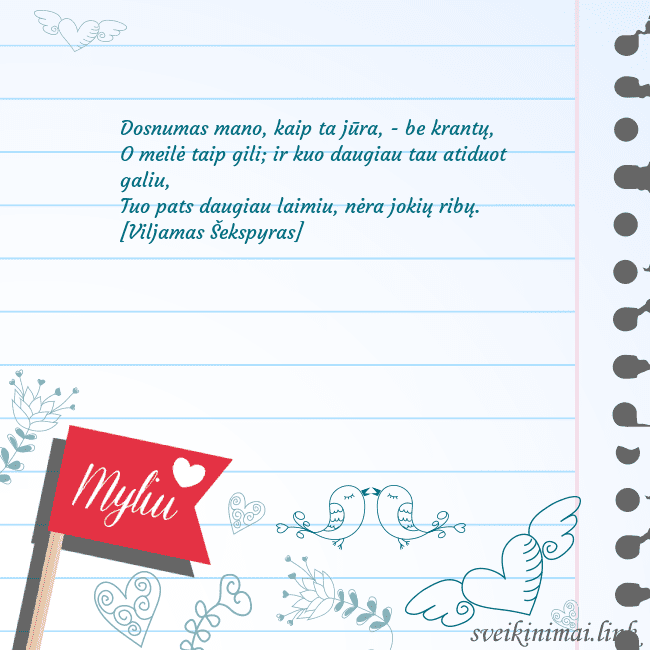 Dosnumas mano, kaip ta jūra, - be krantų,
O meilė taip gili; ir kuo daugiau tau atiduot
galiu,
Tuo pats daugiau laimiu, nėra jokių ribų.
[Viljamas Šekspyras]
Myliu
sveikinimai.link